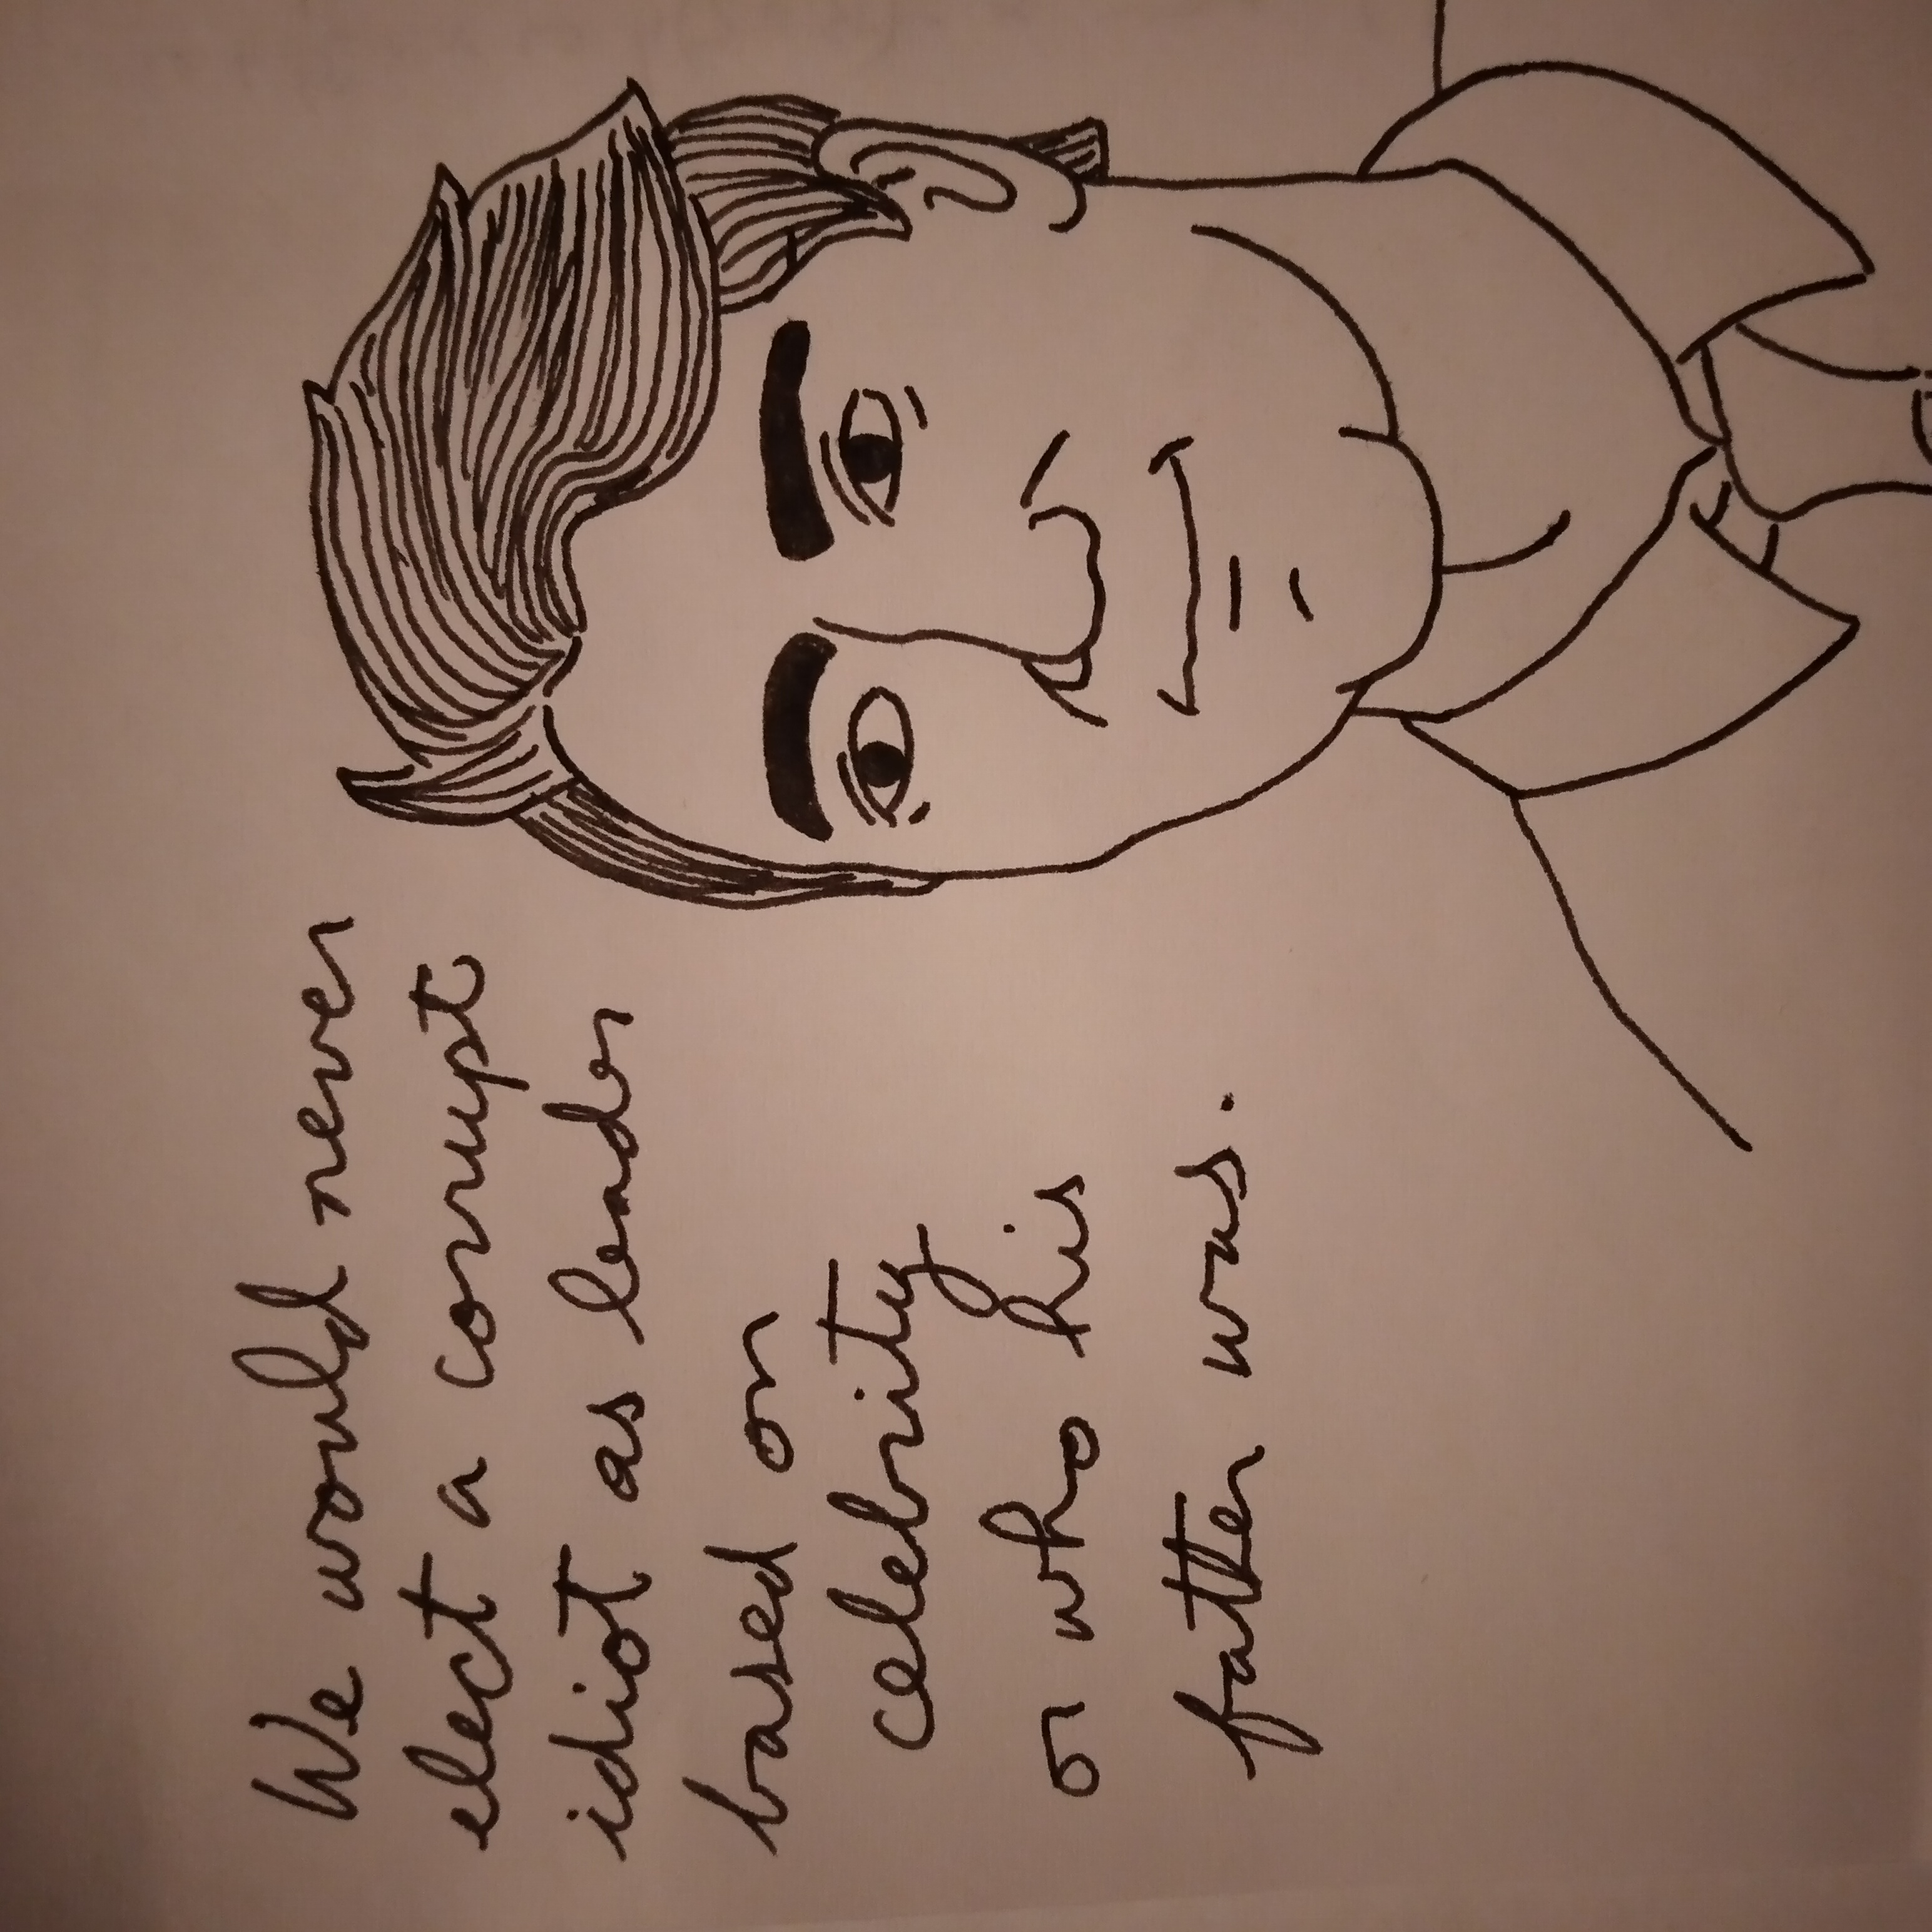 We would never
elect a corrupt
idiot as leader
based on
celebrity
or who his
father was.